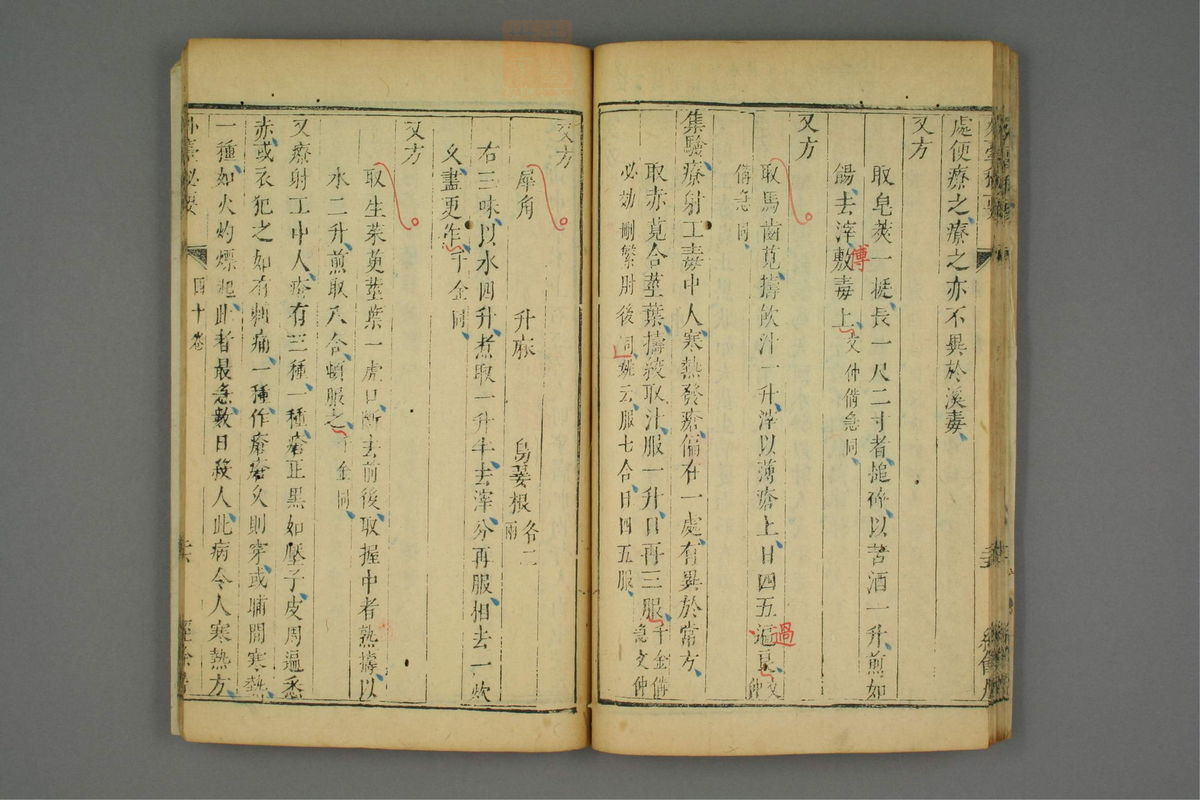 處便療之療之亦不異於溪毒
又方
取皂莢一挺長一尺二寸者搥碎以苦酒一升煎如
餳去滓敷毒上文仲備急同
傅
又方
取馬齒莧擣飲汁一升滓以薄瘡上日四五遍良文仲
過
備急同
集驗療射工毒中人寒熱發瘡偏在一處有異於常方
取赤莧合莖葉擣絞取汁服一升日再三服千金備急文仲
必効刪繁肘後同姚云服七合日四五服
又方
犀角 升麻 烏翣根各二兩
右三味以水四升煮取一升半去滓分再服相去一炊
乆盡更作千金同
又方
取生茱萸莖葉一虎口斷去前後取握中者熟擣以
水二升煎取八合頓服之千金同
又療射工中人瘡有三種一種瘡正黑如黶子皮周遍悉
赤或衣犯之如有刺痛一種作瘡瘡乆則穿或晡間寒熱
一種如火灼熛起此者最急數日殺人此病令人寒熱方
外臺必要
四十卷